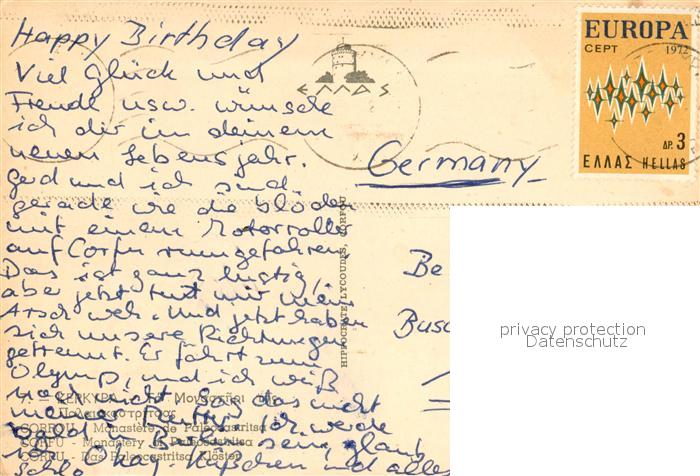 Happy Birthday
Viel Glück und
Freude usw. wünsche
ich dir im deinem
neuen Lebensjahr.
Gerd und ich sind
gerade wie die blöden
mit einem Motorroller
auf Corfu rumgefahren
Das ist ganz lustig,
aber jetzt tut mir mein
Arsch weh. Und jetzt haben
sich unsere Richtungen
getrennt. Er fährt zum
Olymp, und ich weiß
noch nicht
bald in
Okay. Küßchen und alles
ΕΛΛΑΣ
EUROPA
CEPT 1972
ΔΡ. 3
ΕΛΛΑΣ HELLAS
Germany
Be
Busc
HIPPOCRATE LYCOUDES, CORFOU
privacy protection
Datenschutz
ΚΕΡΚΥΡΑ
Παλαιοκαστρίτσας
CORFOU - Monastère de Paleocastritsa
CORFU - Monastery of Paleocastritsa
KORFU - Das Paleocastritsa Kloster